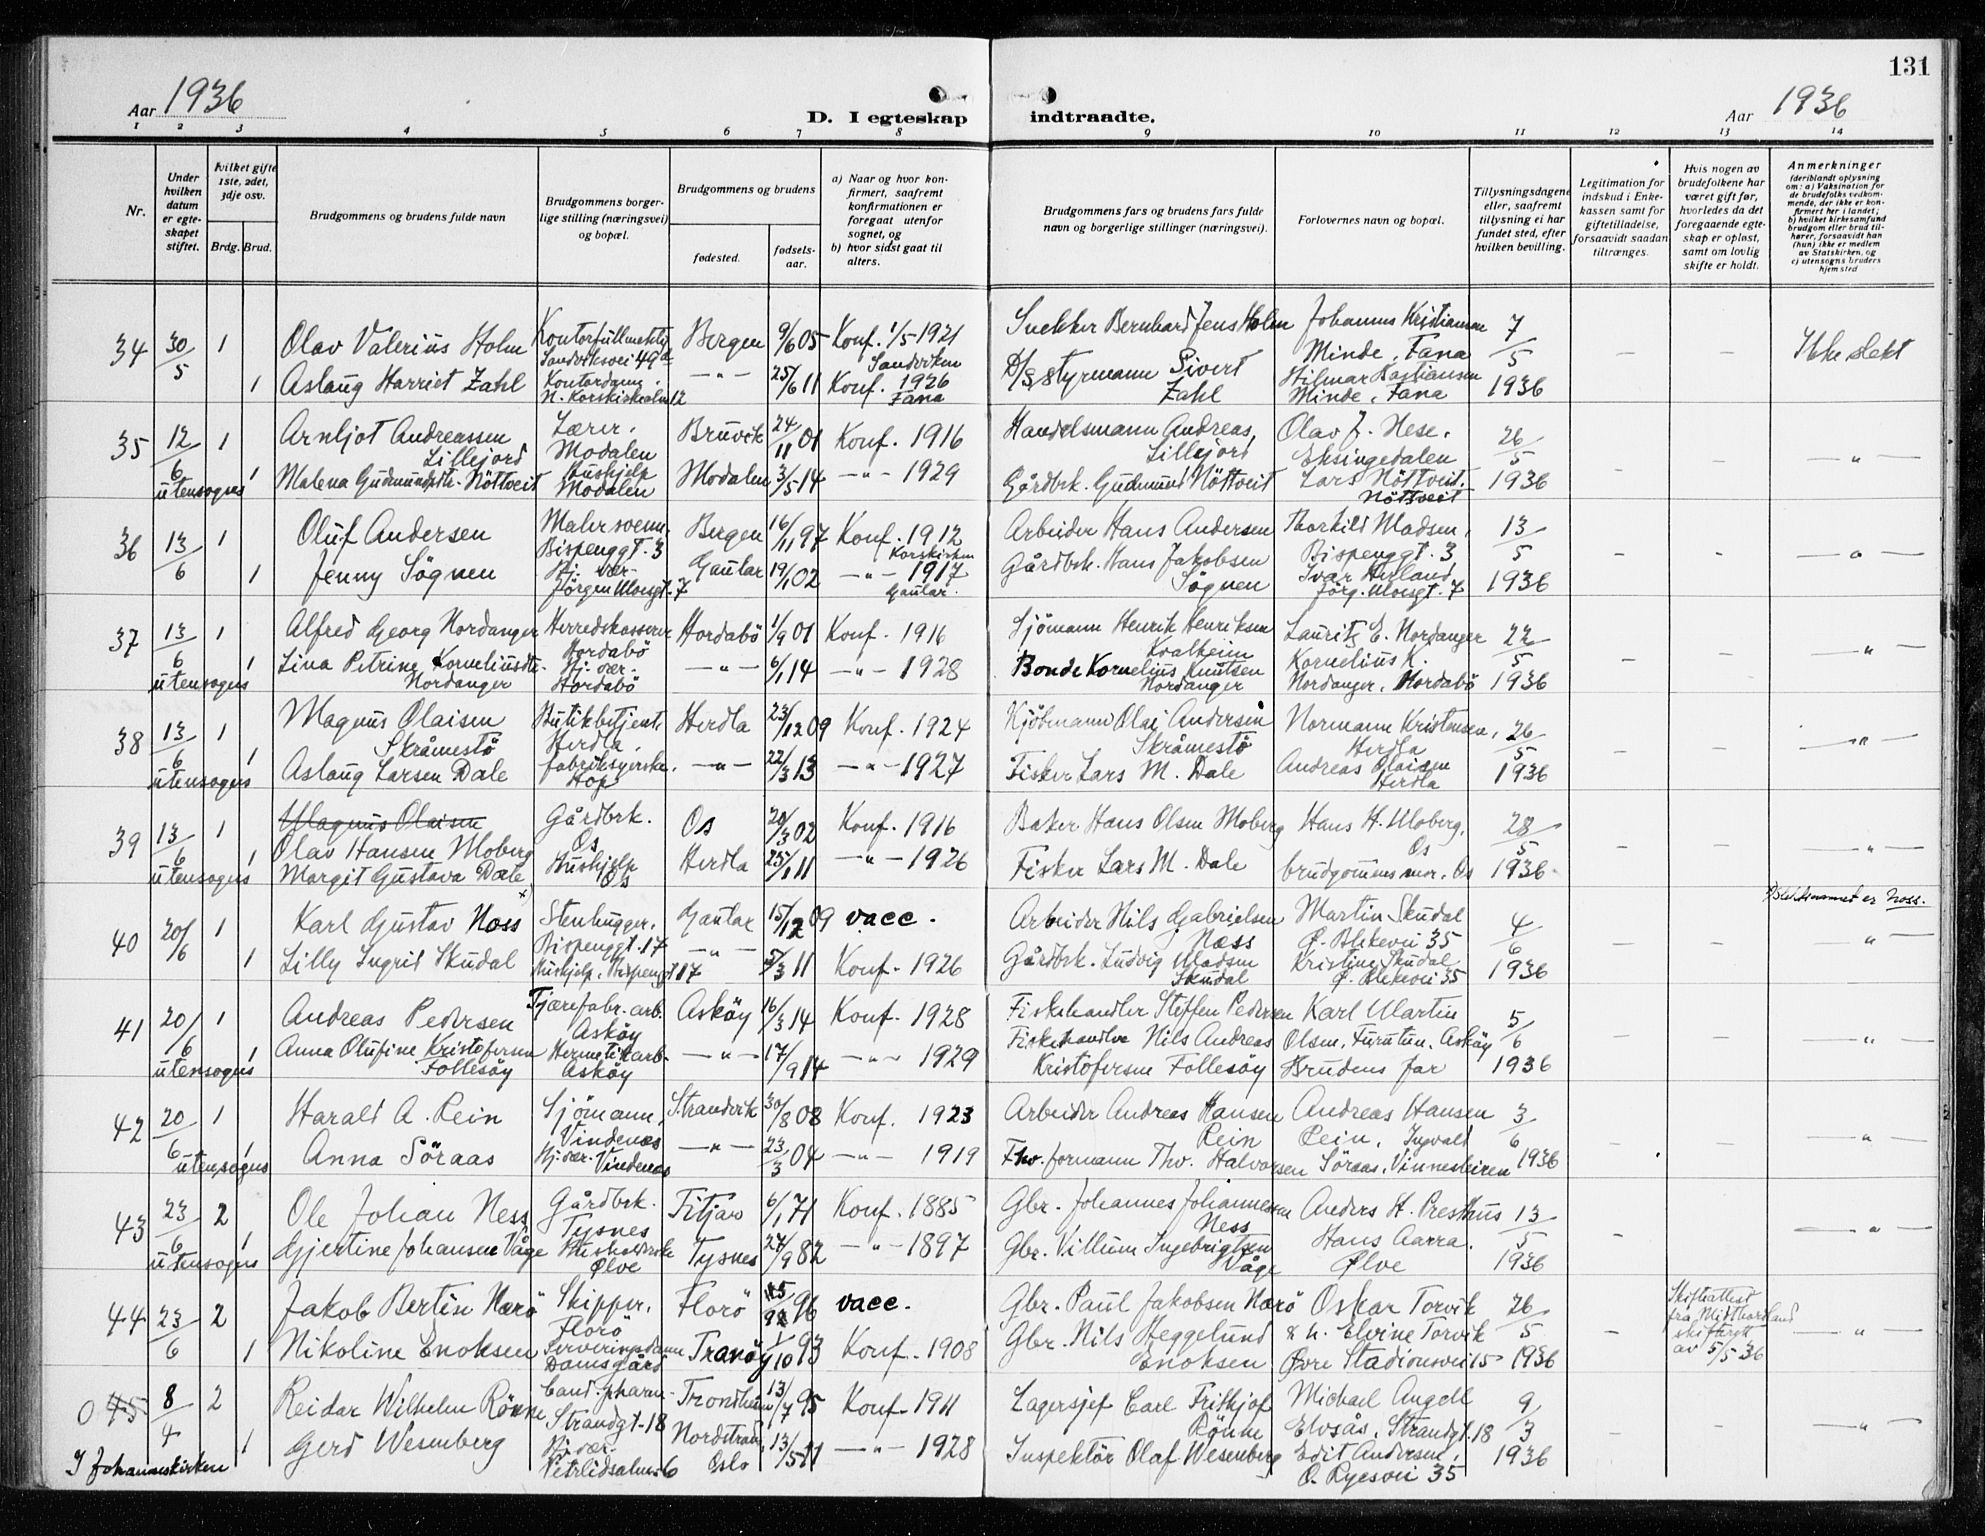 131
Aar 1936
D. I egteskap indtraadte.
Aar 1936
1 2 3 4 5 6 7 8 9 10 11 12 13 14
Nr.
Under hvilken datum er egteskapet stiftet.
hvilket gifte 1ste, 2det, 3dje osv.
Brdg. Brud.
Brudgommens og brudens fulde navn
Brudgommens borgerlige stilling (næringsvei) og bopæl.
Brudgommens og brudens
fødested.
fødselsaar.
a) Naar og hvor konfirmert, saafremt konfirmationen er foregaat utenfor sognet, og
b) hvor sidst gaat til alters.
Brudgommens fars og brudens fars fulde navn og borgerlige stillinger (næringsvei).
Forlovernes navn og bopæl.
Tillysningsdagene eller, saafremt tillysning ei har fundet sted, efter hvilken bevilling.
Legitimation for indskud i Enkekassen samt for giftetilladelse, forsaavidt saadan tiltrænges.
Hvis nogen av brudefolkene har været gift før, hvorledes da det foregaaende egteskap er opløst, samt om lovlig skifte er holdt.
Anmerkninger
(deriblandt oplysning om: a) Vaksination for de brudefolks vedkommende, der ikke er konfirmert her i landet; b) hvilket kirkesamfund brudgom eller brud tilhører, forsaavidt han (hun) ikke er medlem av Statskirken, og c) utensogns bruders hjemsted
34 30/5 1 Olav Valerius Holm Kontorfullmektig Sandviksvei 49a Bergen 9/6 05 Konf. 1/5-1921 Sandviken Snekker Bernhard Jens Holm Johannes Kristiansen Minde, Fana 7/5 1936 - - Ikke slekt
1 Aslaug Harriet Zahl Kontordame N. Korskirkealm 12 -"- 25/6 11 Konf. 1926 Fana D/S styrmann Sivert Zahl Hilmar Bastiansen Minde, Fana
35 12/6 1 Arnljot Andreassen Lillejord Lærer. Modalen Bruvik 24/11 01 Konf. 1916 Handelsmann Andreas Lillejord Olav J. Nese, Eksingedalen 26/5 1936 - - -"-
utensogns 1 Malena Gudmundsdtr. Nöttveit Hushjelp Modalen Modalen 3/5 14 -"- 1929 Gårdbrk. Gudmund Nöttveit Lars Nöttveit. Nöttveit
36 13/6 1 Oluf Andersen Malersvenn. Bispenggt. 3 Bergen 16/11 97 Konf. 1912 Korskirken Arbeider Hans Andersen Thorkild Madsen, Bispenggt. 3 13/5 1936 - - -"-
1 Jenny Sögnen Hj. vær. Jörgen Moesgt. 7 Gaular 19/1 02 -"- 1917 Gaular. Gårdbrk. Hans Jakobsen Sögnen Ivar Hirland Jörg. Moesgt. 7
37 13/6 1 Alfred Georg Nordanger Herredskasserer Hordabö Hordabö 1/9 01 Konf. 1916 Sjömann Henrik Henriksen Kvalheim Lauritz E. Nordanger 22/5 1936 - - -"-
utensogns 1 Lina Petrine Korneliusdtr. Nordanger Hj. vær. Hordabö -"- 6/1 14 -"- 1928 Bonde Kornelius Knutsen Nordanger Kornelius K. Nordanger, Hordabö
38 13/6 1 Magnus Olaisen Skråmestö Butikbetjent Herdla. Herdla 23/12 09 Konf. 1924 Kjöbmann Olai Andersen Skråmestö Normann Kristensen, Herdla 26/5 1936 - - -"-
utensogns 1 Aslaug Larsen Dale fabriksyerske. Hop -"- 22/3 13 -"- 1927 Fisker Lars M. Dale Andreas Olaisen Herdla
39 13/6 1 Magnus Olaisen Olav Hansen Moberg Gårdbrk. Os Os 20/3 02 Konf. 1916 Baker Hans Olsen Moberg Hans H. Moberg, Os 28/5 1936. - - -"-
utensogns 1 Margit Gustava Dale Hushjelp Os Herdla 25/1 11 -"- 1926 Fisker Lars M. Dale brudgommens mor, Os
x) Slektsnamnet er Noss.
40 20/6 1 Karl Gustav Noss x Stenhugger. Bispenggt. 17 Gaular 15/12 09 vacc. Arbeider Nils Gabrielsen Næss Martin Skudal Ø. Blekevei 35 4/6 1936 - - -"-
1 Lilly Ingrid Skudal Hushjelp. Bispenggt 17 -"- 5/3 11 Konf. 1926 Gårdbrk. Ludvig Madsen Skudal Kristine Skudal Ø. Blekevei 35
41 20/6 1 Andreas Pedersen Tjærefabr. arb. Asköy Asköy 16/3 14 Konf. 1928 Fiskehandler Steffen Pedersen Karl Martin Olsen, Furutun, Asköy 5/6 1936 - - -"-
utensogns 1 Anna Olufine Kristofersen Follesöy Hermetikarb. Asköy -"- 17/9 14 -"- 1929 Fiskehandler Nils Andreas Kristofersen Follesöy Brudens far
42 20/6 1 Harald A. Rein Sjömann, Vindenæs Strandvik 30/8 08 Konf. 1923 Arbeider Andreas Hansen Rein Andreas Hansen Rein, Ingvald 3/6 1936 - - -"-
utensogns 1 Anna Söraas Hj. vær. Vindenæs -"- 23/3 04 -"- 1919 Fhv. formann Thv. Halvorsen Söraas, Vinnesleiren
43 23/6 2 Ole Johan Ness Gårdbrk. Tysnes Fitjar 6/1 71 Konf. 1885 Gbr. Johannes Johannessen Ness Anders H. Presthus 13/5 1936 - -"-
utensogns 1 Gjertine Johansen Våge Husholderske Ølve Tysnes 27/9 82 -"- 1897 Gbr. Villum Ingebrigtsen Våge Hans Aarra. Ølve
44 23/6 2 Jakob Bertin Nærö Skipper, Florö Florö 96 vacc. Gbr. Paul Jakobsen Nærö Oskar Torvik 26/5 1936 - Skifteattest fra Midthordland skifterett av 5/5-36 -"-
1 Nikoline Enoksen Serveringsdame Damsgård Tranöy 1/10 93 Konf. 1908 Gbr. Nils Heggelund Enoksen & h. Elvine Torvik Øvre Stadionsvei 15
0 45 8/4 2 Reidar Wilhelm Rönne Cand. pharm. Strandgt. 18 Trondheim 13/7 95 Konf. 1911 Lagersjef Carl Fritkjof Rönne Michael Angell Elvsås, Strandgt. 18 9/3 1936 - - -"-
I Johanneskirken 1 Gerd Wesenberg Hj. vær. Vetrlidsalm. 6 Nordstrand, Oslo 13/5 11 -"- 1928 Inspektör Olaf Wesenberg Edit Andersen, O. Ryesvei 35